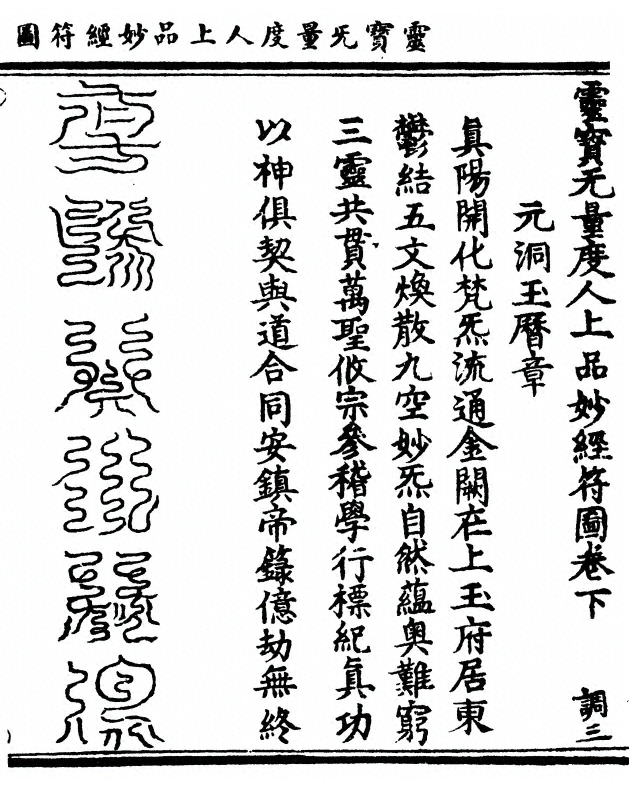 靈寶旡量度人上品妙經符圖
靈寶无量度人上品妙經符圖卷下
調三
元洞玉曆章
眞陽開化梵炁流通金闕在上玉府居東
鬱結五文煥散九空妙炁自然蘊奥難窮
三靈共貫萬聖攸宗參稽學行標紀眞功
以神俱契與道合同安鎮帝錄億劫無終